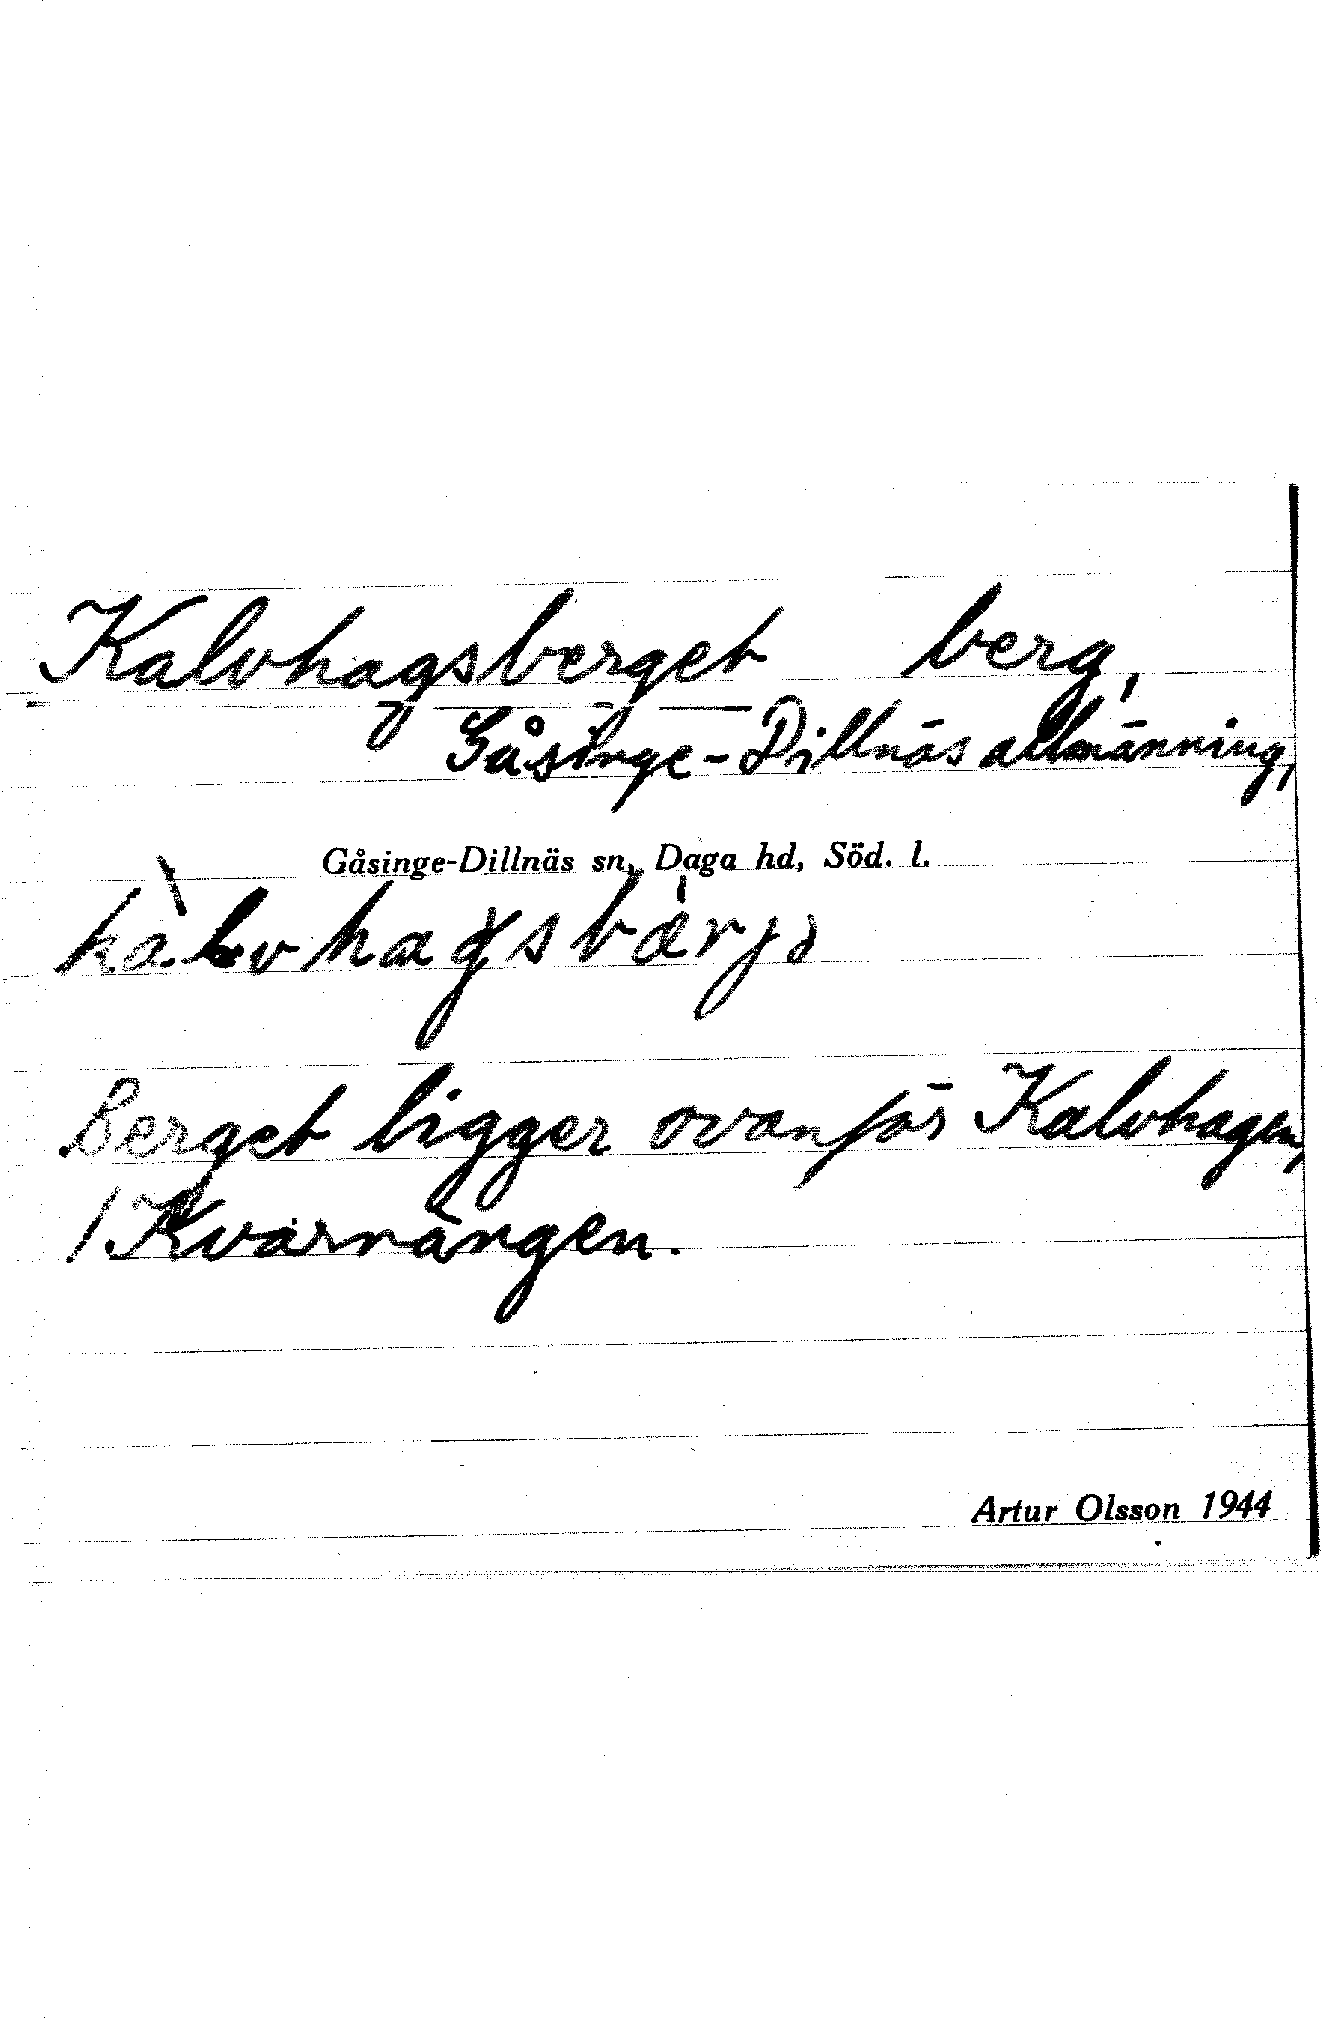 Kalvhagsberget berg,
Gåsinge-Dillnäs allmänning,
Gåsinge-Dillnäs sn, Daga hd, Söd. l.
Berget ligger ovanför Kalvhagen,
/ Kvarnängen.
Artur Olsson 1944